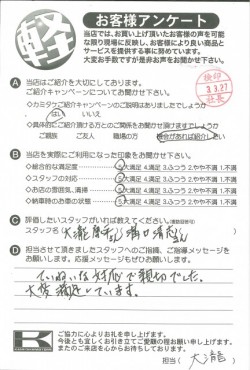 軽
お客様アンケート
当店では、お買い上げ頂いたお客様の声を可能
な限り現場に反映し、お客様により良い商品と
サービスを提供する事に努めています。
大変お手数ですが是非お声をお聞かせ下さい。
検印
3.3.27
社長
A 当店はご紹介を大切にしております。
ご紹介キャンペーンについてお聞かせ下さい。
◇カミタケご紹介キャンペーンのご説明はありましたでしょうか
はい いいえ
◇具体的にご紹介頂ける方とのご関係をお聞かせ頂けますでしょうか
ご親族 ご友人 職場の方 機会があれば紹介したい
B 当店を実際にご利用になった印象をお聞かせ下さい。
◇総合的な満足度 5.大満足 4.満足 3.ふつう 2.やや不満 1.不満
◇スタッフの対応 5.大満足 4.満足 3.ふつう 2.やや不満 1.不満
◇お店の雰囲気、清掃 5.大満足 4.満足 3.ふつう 2.やや不満 1.不満
◇納車時のお車の状態 5.大満足 4.満足 3.ふつう 2.やや不満 1.不満
C 評価したいスタッフがいれば教えてください。(複数回答可)
スタッフ名( 大瀧 さん 溝口 さん )
D 担当させて頂きましたスタッフへのご指摘、ご指導メッセージを
お願いします。応援メッセージもぜひお願いします。
ていねいな対応で親切でした。
大変満足しています。
K
ご協力に心よりお礼を申し上げます。
今後とも宜しくお引き立てご愛顧の程お願い申し上げます。
またのご来店を心からお待ちしております。
担当( 大瀧 )